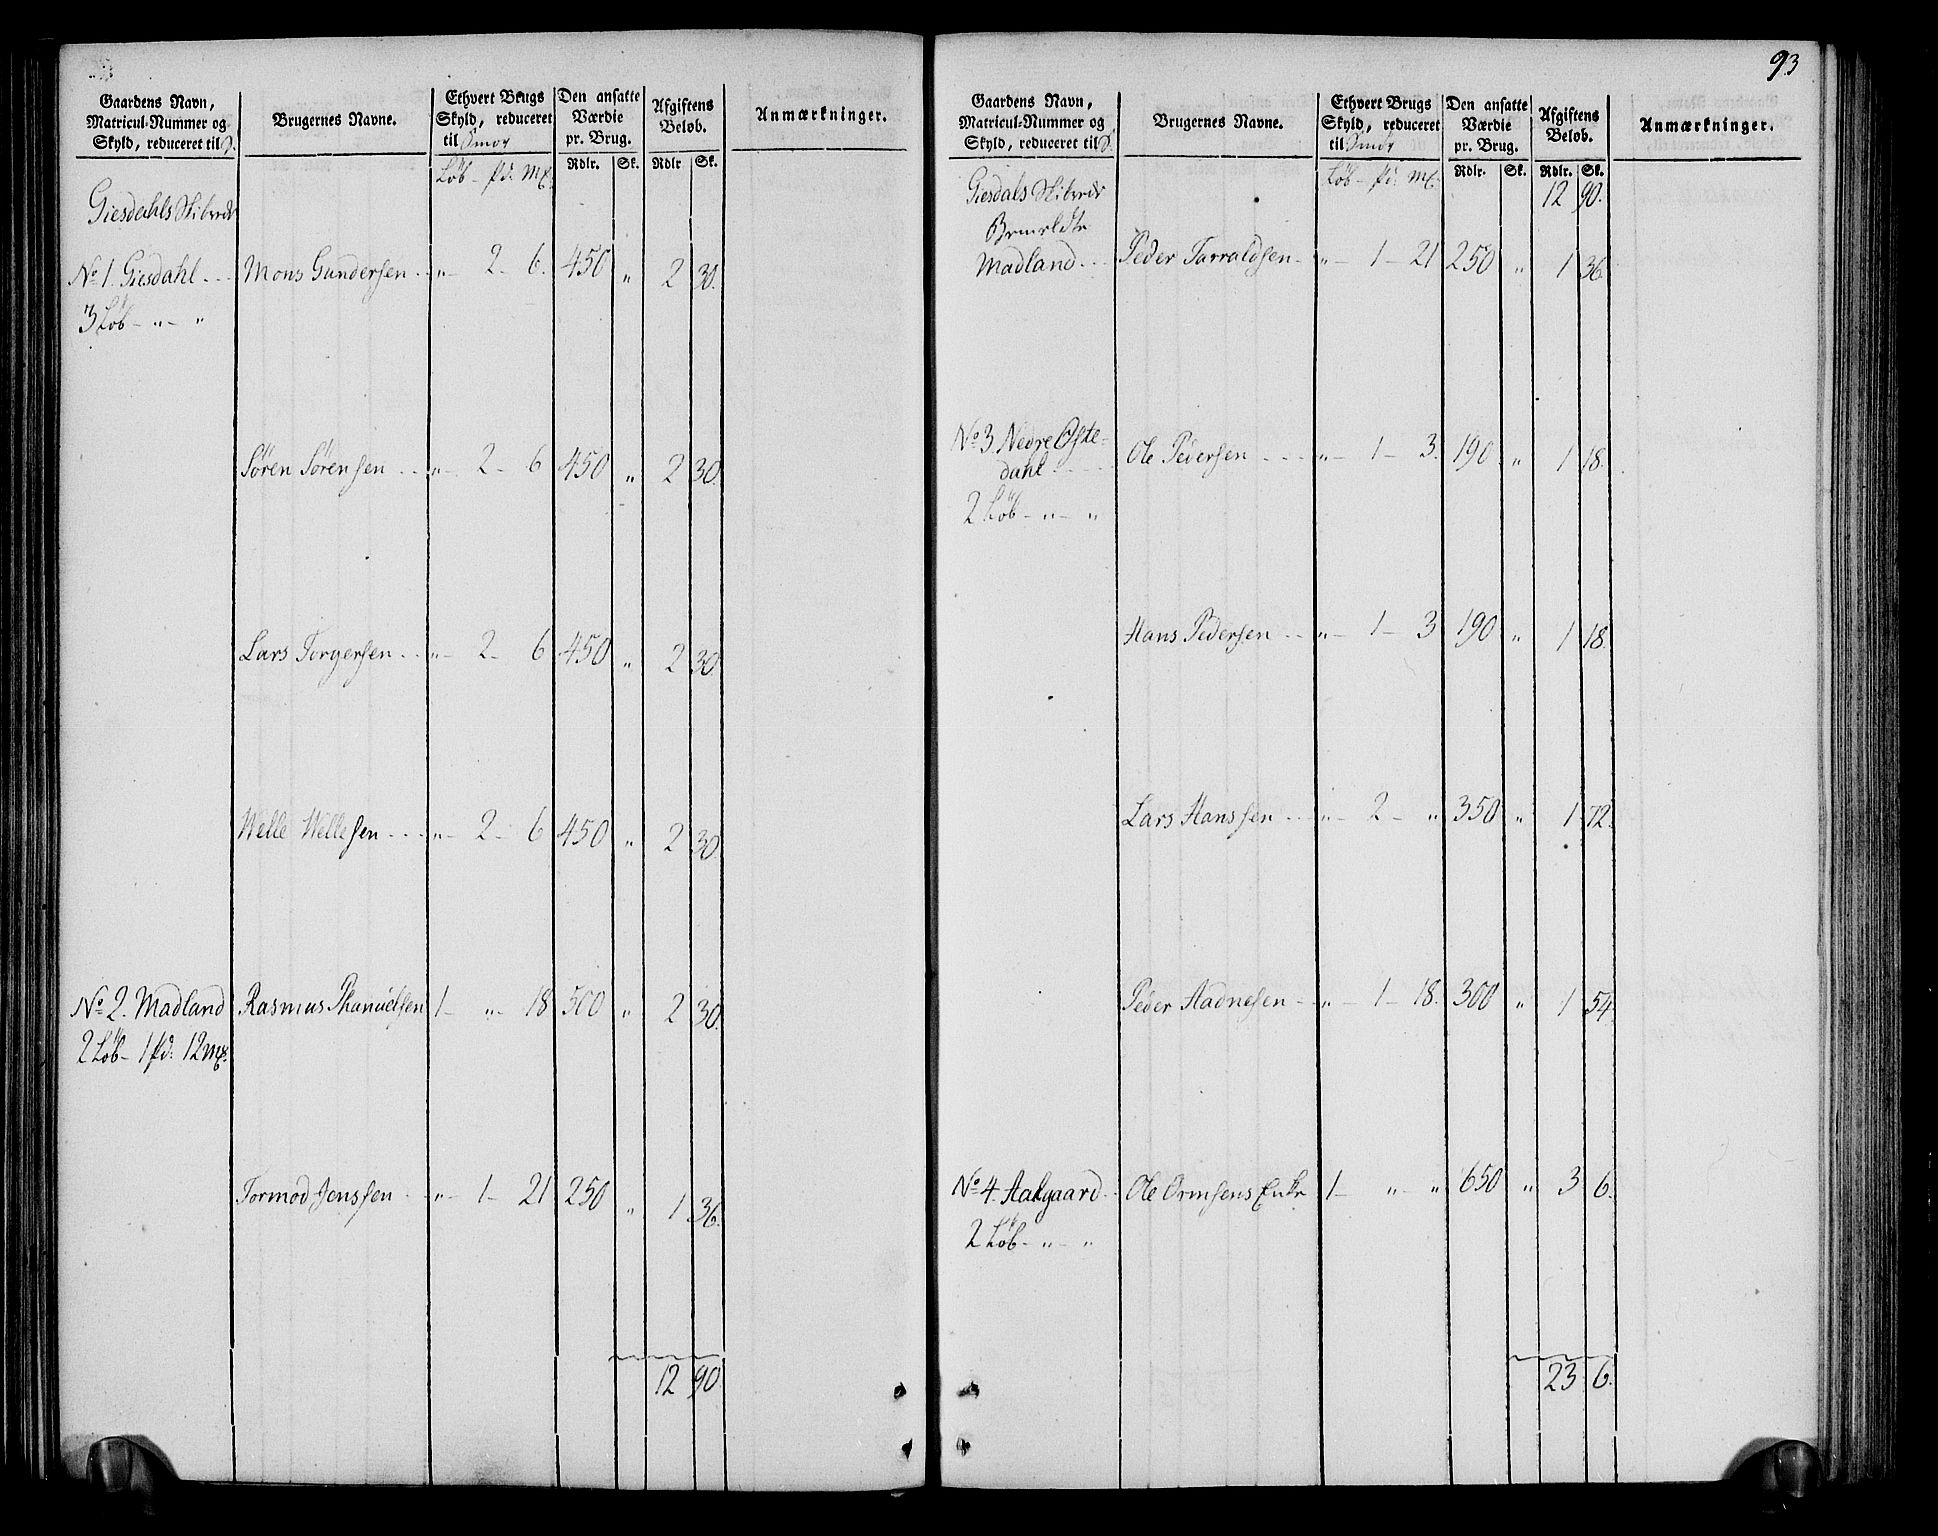 Gaardens Navn, Matricul-Nummer og Skyld, reduceret til S. | Brugernes Navne. | Ethvert Brugs Skyld, reduceret til Smør | Den ansatte Værdie pr. Brug. | Afgiftens Beløb. | Anmærkninger.
Løb - Pd: Mk: | Rdlr. | Sk. | Rdlr | Sk.
Giesdahls Skibrede
No 1. Giesdahl | Mons Gundersen | " - 2 - 6. | 450 | " | 2 | 30.
3 Løb - " - "
Søren Sørensen | " - 2 - 6 | 450 | " | 2 | 30.
Lars Torgersen | " - 2 - 6 | 450 | " | 2 | 30.
Welle Wellesen | " - 2 - 6 | 450 | " | 2 | 30.
No 2. Madland | Rasmus | 1 - " - 18 | 500 | " | 2 | 30.
2 Løb - 1 Pd: 12 Mk:
Tormod Jenssen | " - 1 - 21 | 250 | " | 1 | 36.
12 | 90.
93
Gaardens Navn, Matricul-Nummer og Skyld, reduceret til S. | Brugernes Navne. | Ethvert Brugs Skyld, reduceret til Smør | Den ansatte Værdie pr. Brug. | Afgiftens Beløb. | Anmærkninger.
Løb - Pd: Mk: | Rdlr. | Sk. | Rdlr. | Sk.
Giesdals Skibrede | 12 | 90.
Madland | Peder Tarraldsen | " - 1 - 21 | 250 | " | 1 | 36
No 3 Nedre Øfste-
dahl | Ole Pedersen | " - 1 - 3. | 190 | " | 1 | 18.
2 Løb - " - "
Hans Pedersen | " - 1 - 3 | 190 | " | 1 | 18.
Lars Hanssen | " - 2 - " | 350 | " | 1 | 72.
Peder Aadnesen | " - 1 - 18. | 300 | " | 1 | 54
No 4. Aalgaard | Ole Ormsens Enke | 1 - " - " | 650 | " | 3 | 6.
2 Løb - " - "
23 | 6.